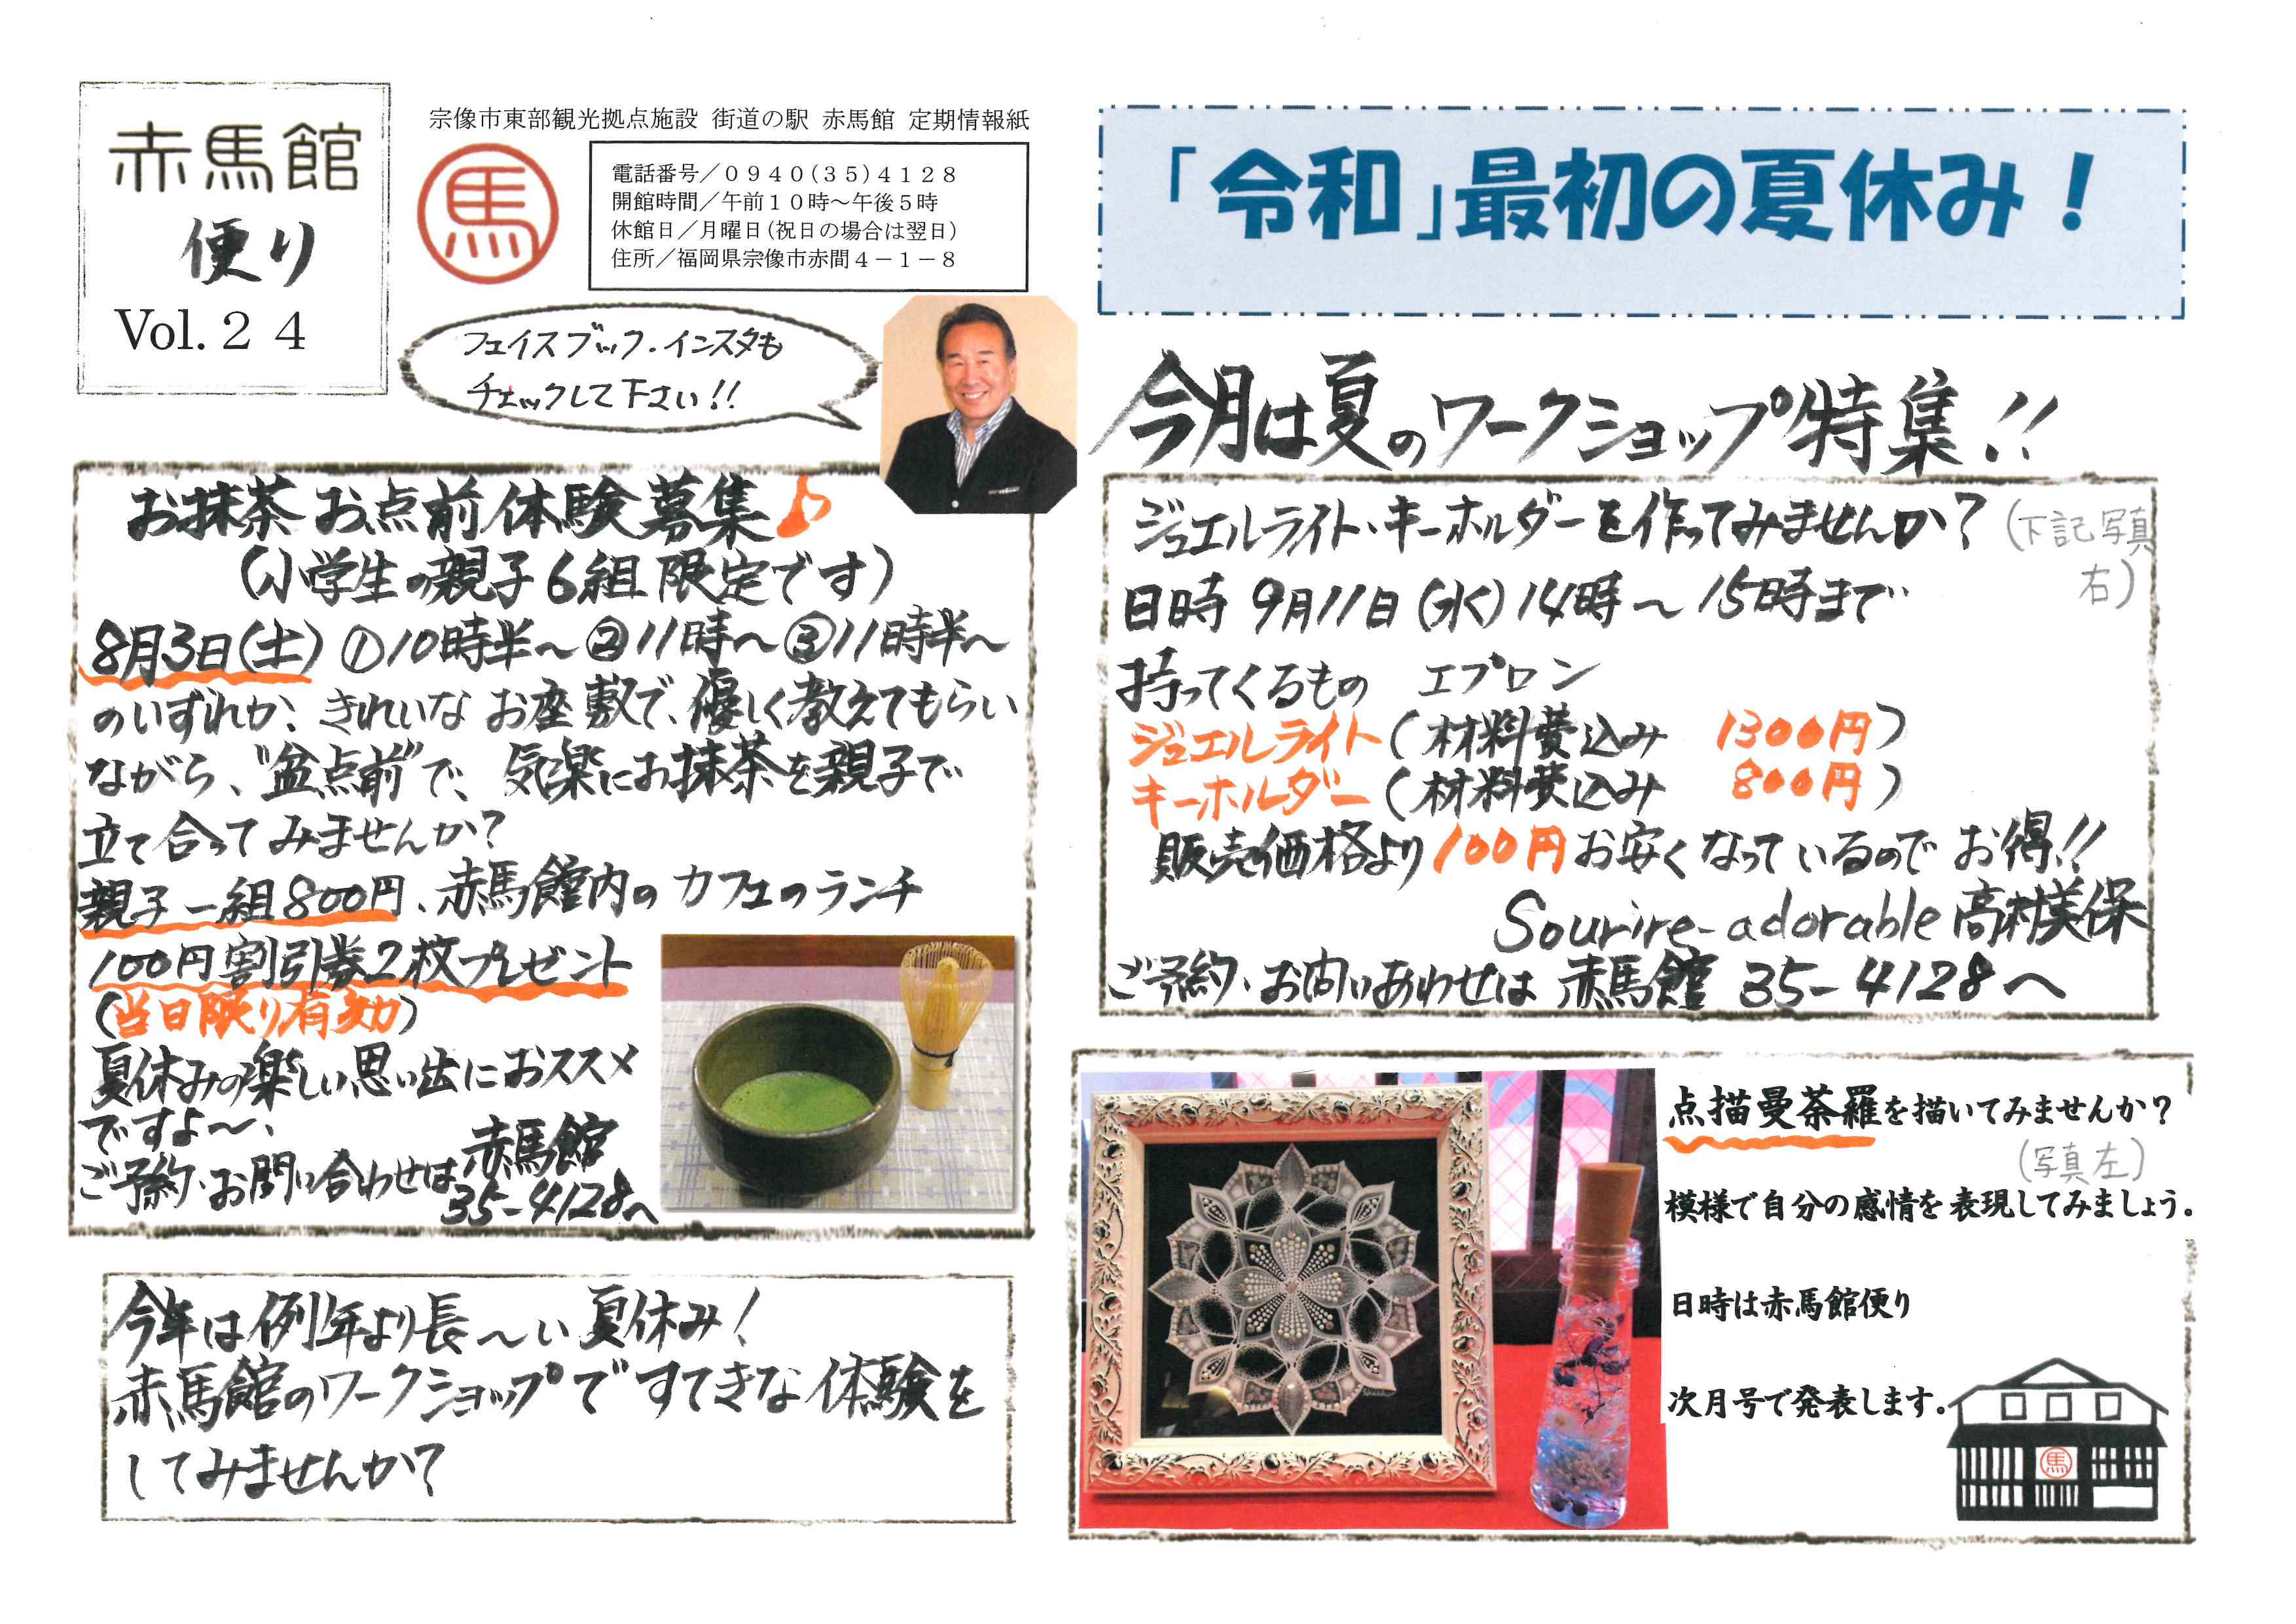 赤馬館
便り
Vol.２４
宗像市東部観光拠点施設 街道の駅 赤馬館 定期情報紙
馬
電話番号／０９４０(３５)４１２８
開館時間／午前１０時～午後５時
休館日／月曜日(祝日の場合は翌日)
住所／福岡県宗像市赤間４－１－８
フェイスブック・インスタも
チェックして下さい!!
お抹茶お点前体験募集♪
(小学生の親子6組限定です)
8月3日(土) ①10時半～②11時～③11時半～
のいずれか、きれいなお座敷で、優しく教えてもらい
ながら、"盆点前"で、気楽にお抹茶を親子で
立て合ってみませんか?
親子一組800円、赤馬館内のカフェのランチ
100円割引券2枚プレゼント
(当日限り有効)
夏休みの楽しい思い出におススメ
ですよ～、
ご予約・お問い合わせは赤馬館
35-4128へ
今年は例年より長～い夏休み!
赤馬館のワークショップですてきな体験を
してみませんか?
「令和」最初の夏休み！
今月は夏のワークショップ特集!!
ジュエルライト・キーホルダーを作ってみませんか? (下記写真
右)
日時 9月11日(水)14時～15時まで
持ってくるもの エプロン
ジュエルライト(材料費込み 1300円)
キーホルダー(材料費込み 800円)
販売価格より100円お安くなっているのでお得!!
Sourire-adorable 高村美保
ご予約・お問いあわせは 赤馬館 35-4128へ
点描曼荼羅を描いてみませんか？
(写真左)
模様で自分の感情を表現してみましょう。
日時は赤馬館便り
次月号で発表します。
馬